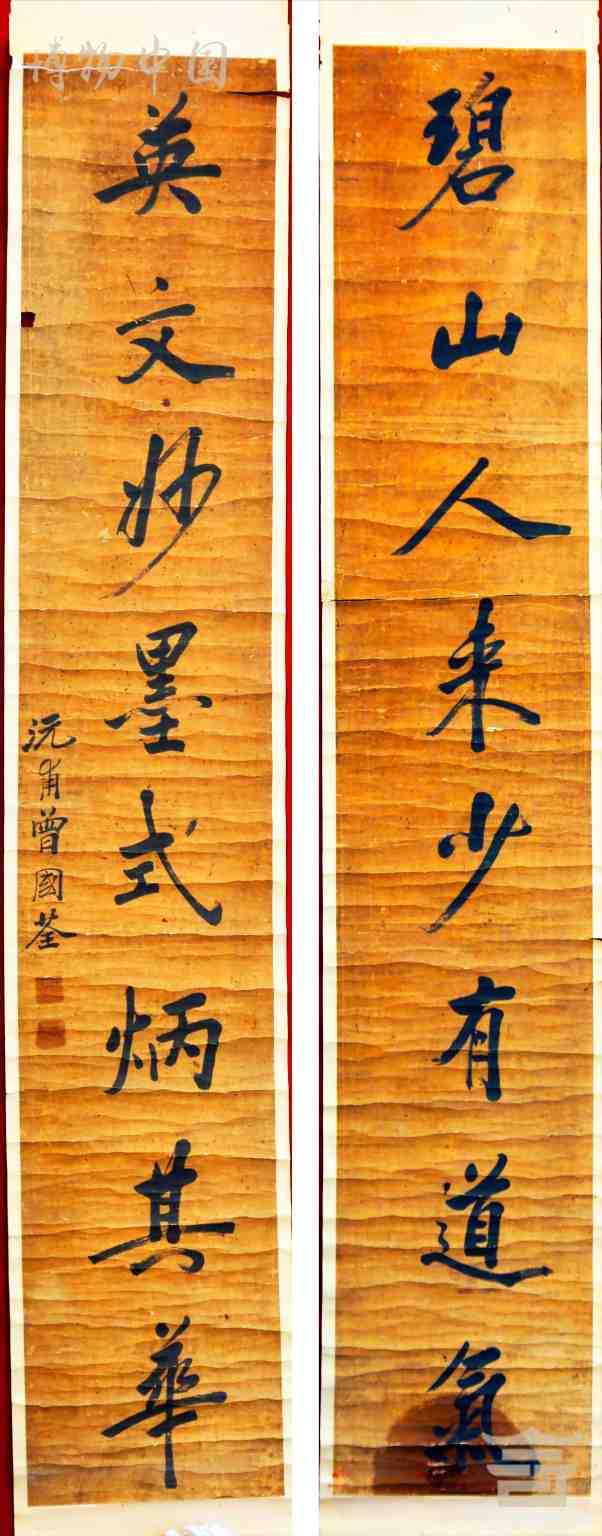 碧山人来少有道氣
英文妙墨式炳其華
沅甫曾國荃
博物中国